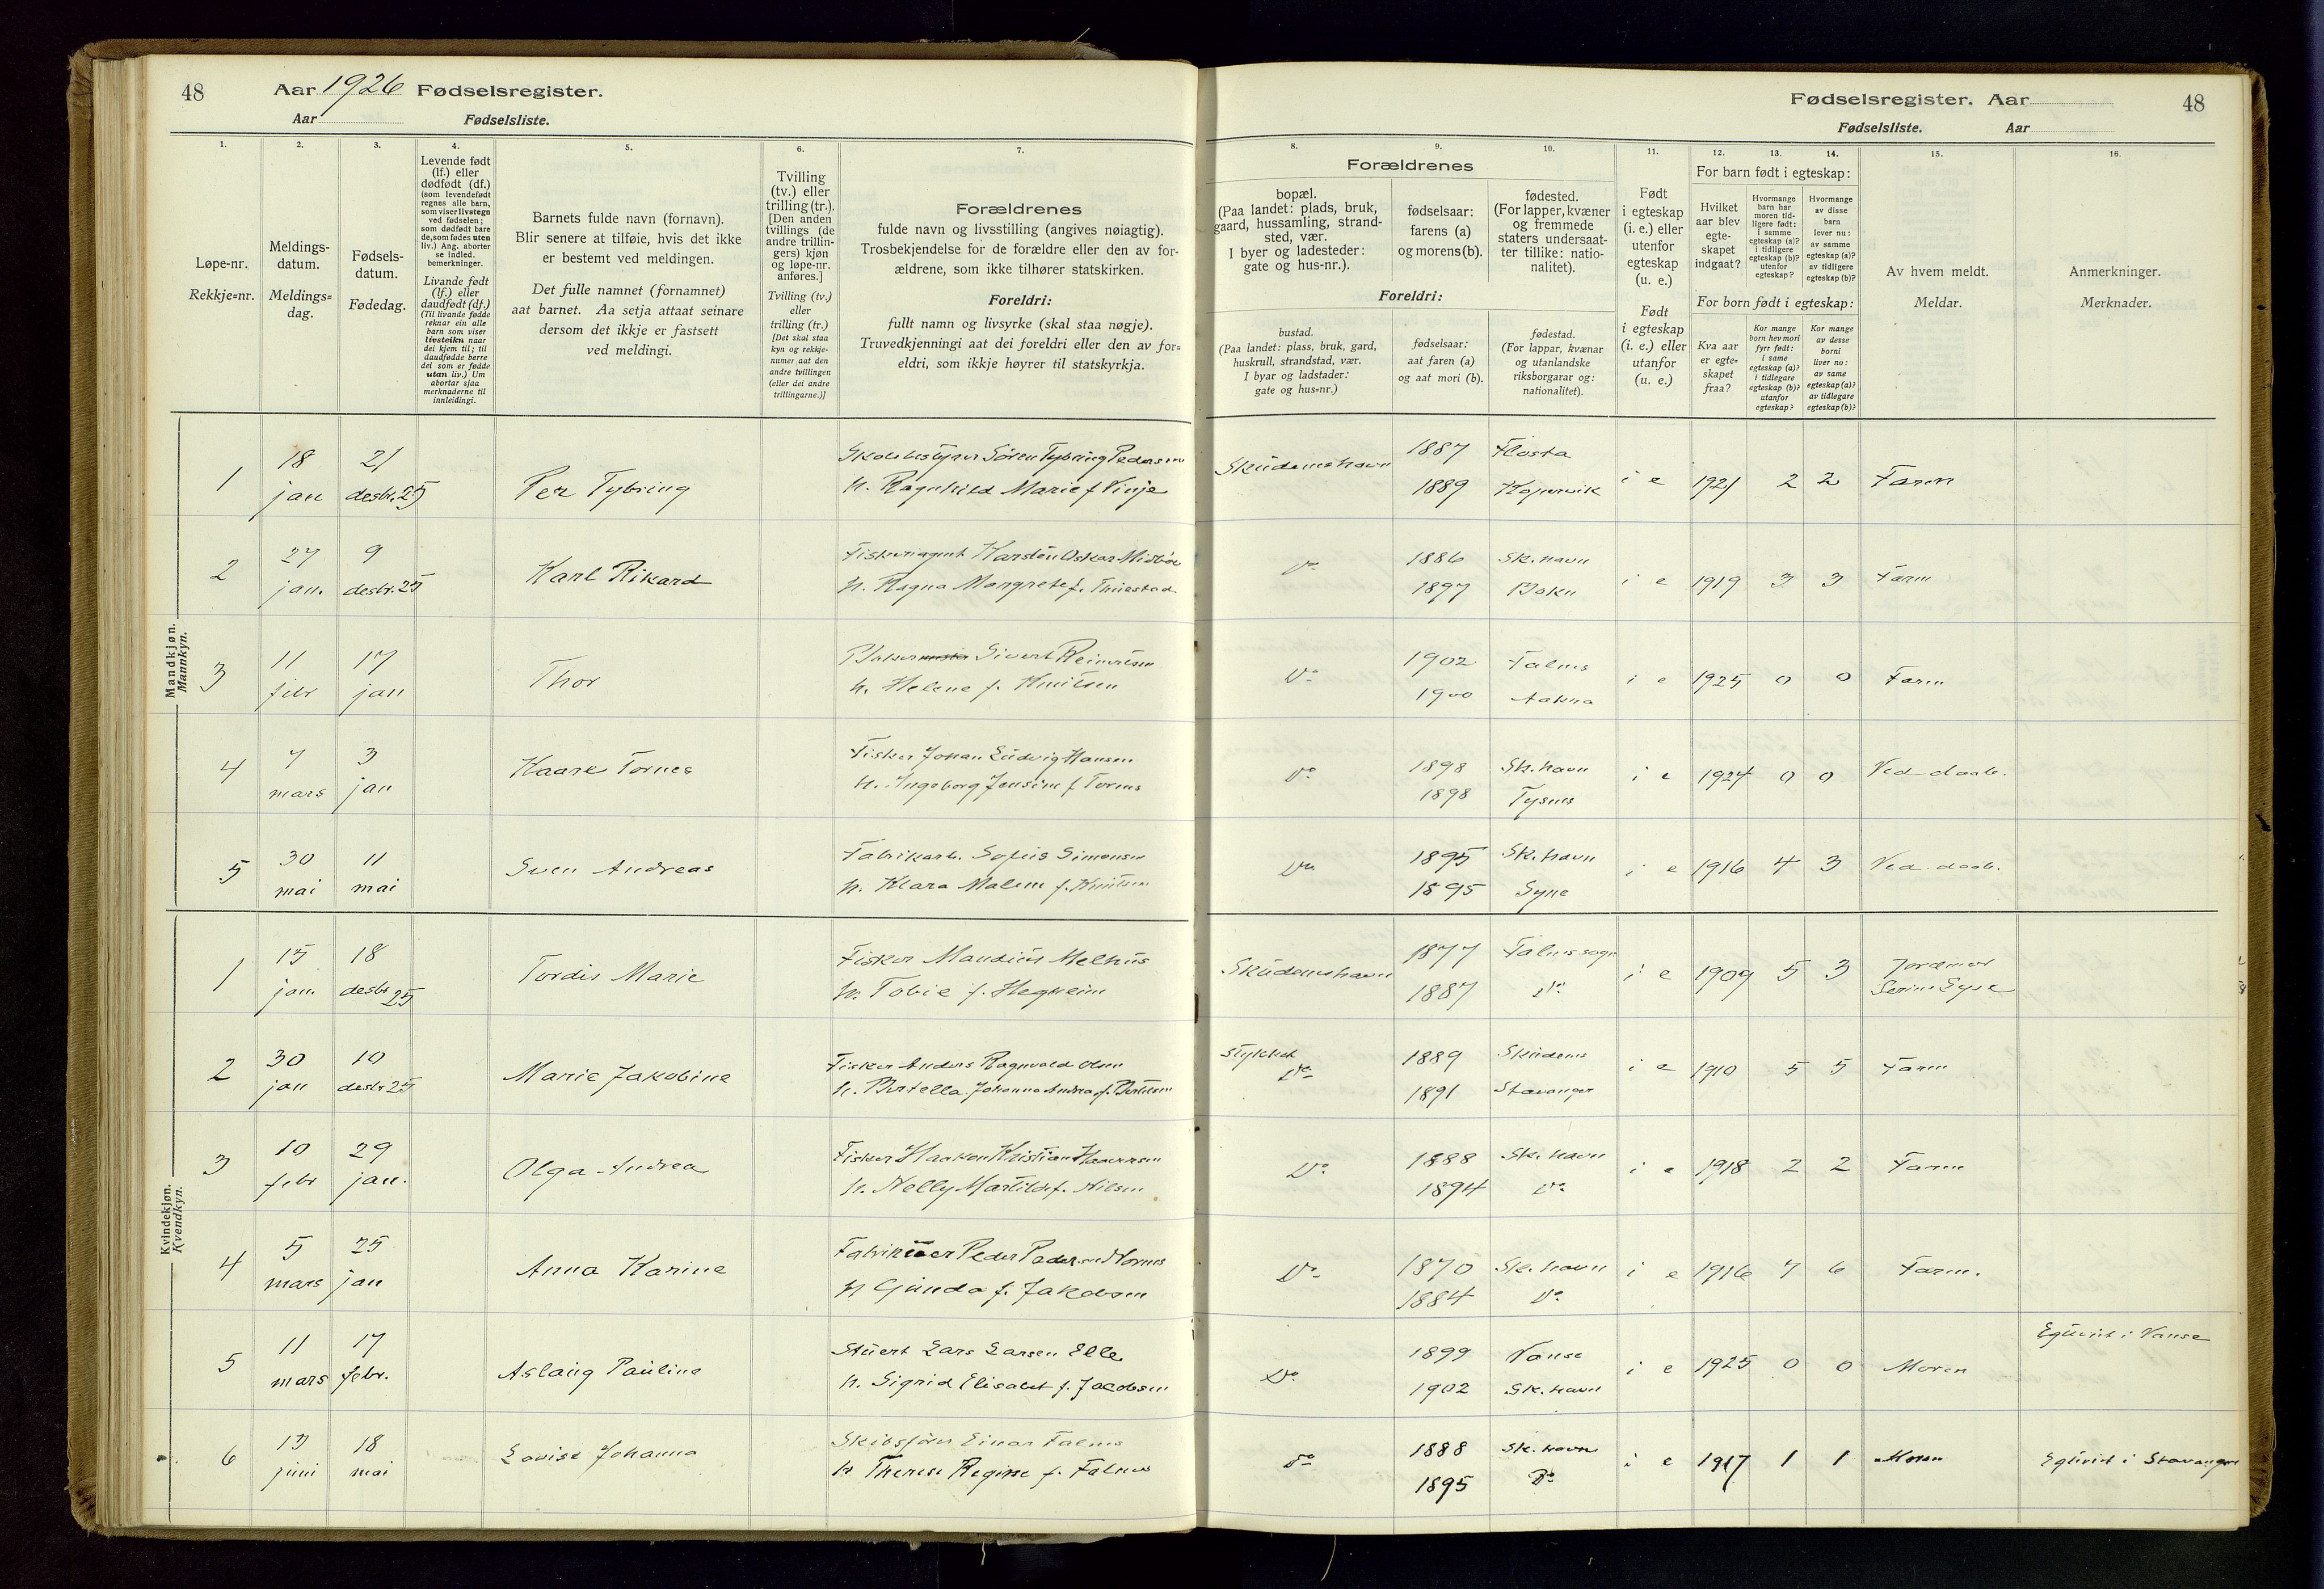 48
Aar 1926 Fødselsregister.
Aar Fødselsliste.
Fødselsregister. Aar
Fødselsliste. Aar
48
1.
Løpe-nr.
Rekkje=nr.
2.
Meldings-
datum.
Meldings=
dag.
3.
Fødsels-
datum.
Fødedag.
4.
Levende født
(lf.) eller
dødfødt (df.)
(som levendefødt
regnes alle barn,
som viser livstegn
ved fødselen;
som dødfødt bare
de, som fødes uten
liv.) Ang. aborter
se indled.
bemerkninger.
Livande født
(lf.) eller
daudfødt (df.)
(Til livande fødde
reknar ein alle
barn som viser
livsteikn naar
dei kjem til; til
daudfødde berre
dei som er fødde
utan liv.) Um
abortar sjaa
merknaderne til
innleidingi.
5.
Barnets fulde navn (fornavn).
Blir senere at tilføie, hvis det ikke
er bestemt ved meldingen.
Det fulle namnet (fornamnet)
aat barnet. Aa setja attaat seinare
dersom det ikkje er fastsett
ved meldingi.
6.
Tvilling
(tv.) eller
trilling (tr.).
[Den anden
tvillings (de
andre trillin-
gers) kjøn
og løpe-nr.
anføres.]
Tvilling (tv.)
eller
trilling (tr.)
[Det skal staa
kyn og rekkje-
numer aat den
andre tvillingen
(eller dei andre
trillingarne.)]
7.
Forældrenes
fulde navn og livsstilling (angives nøiagtig).
Trosbekjendelse for de forældre eller den av for-
ældrene, som ikke tilhører statskirken.
Foreldri:
fullt namn og livsyrke (skal staa nøgje).
Truvedkjenningi aat dei foreldri eller den av for=
eldri, som ikkje høyrer til statskyrkja.
8.
Forældrenes
bopæl.
(Paa landet: plads, bruk,
gaard, hussamling, strand-
sted, vær.
I byer og ladesteder:
gate og hus-nr.).
Foreldri:
bustad.
(Paa landet: plass, bruk, gard,
huskrull, strandstad, vær.
I byar og ladstader:
gate og hus=nr.)
9.
fødselsaar:
farens (a)
og morens (b).
fødselsaar:
aat faren (a)
og aat mori (b).
10.
fødested.
(For lapper, kvæner
og fremmede
staters undersaat-
ter tillike: natio-
nalitet).
fødestad.
(For lappar, kvænar
og utanlandske
riksborgarar og:
nationalitet).
11.
Født
i egteskap
(i. e.) eller
utenfor
egteskap
(u. e.)
Født
i egteskap
(i. e.) eller
utanfor
(u. e.)
12.
For barn født i egteskap:
Hvilket
aar blev
egte-
skapet
indgaat?
For born født i egteskap:
Kva aar
er egte=
skapet
fraa?
13.
Hvormange
barn har
moren tid-
ligere født:
i samme
egteskap (a)?
i tidligere
egteskap (b)?
utenfor
egteskap?
Kor mange
born hev mori
fyrr født:
i same
egteskap (a)?
i tidlegare
egteskap (b)?
utanfor
egteskap?
14.
Hvormange
av disse
barn
lever nu:
av samme
egteskap (a)?
av tidligere
egteskap (b)?
Kor mange
av desse
borni
liver no:
av same
egteskap (a)?
av tidlegare
egteskap (b)?
15.
Av hvem meldt.
Meldar.
16.
Anmerkninger.
Merknader.
Mandkjøn.
Mannkyn.
1 18 jan 21 desbr. 25 Per Tybring Skolebestyrer Sören Tybring Pedersen
h. Ragnhild Marie f. Vinje Skudeneshavn 1887 Flosta
1889 Kopervik i e 1921 2 2 Faren
2 27 jan. 9 desbr. 25 Karl Rikard Karsten Oskar
h. Ragna Margrete f. Do 1886 Sk.havn
1897 Bokn i e 1919 3 3 Faren
3 11 febr 17 jan Thor Sivert Reinertsen
h. Helene f. Knutsen Do 1902 Falnes
1900 Aakra i e 1925 0 0 Faren
4 7 mars 3 jan Kaare Tornes Fisker Johan Ludvig Hansen
h. Ingeborg Jensine f Tornes Do 1898 Sk.havn
1898 Tysnes i e 1924 0 0 Ved daab.
5 30 mai 11 mai Sven Andreas Fabrikarb. Sofus Simonsen
h. Klara Malene f. Knutsen Do 1895 Sk.havn
1895 Syre i e 1916 4 3 Ved daab.
Kvindekjøn.
Kvendkyn.
1 15 jan. 18 desbr 25 Tordis Marie Fisker Maudius Melhus
h. Tobie f. Hegheim Skudeneshavn 1877 Falnes sogn
1887 Do i e 1909 5 3 Jordmor
Serine Syre
2 30 jan 10 desbr 25 Marie Jakobine Fisker Anders Ragnvald Olsen
h. Bertella Johanna Andrea f. Bertelsen Stykket
Do 1889 Skudenes
1891 Stavanger i e 1910 5 5 Faren
3 10 febr 29 jan. Olga Andrea Fisker Haakon Kristian
h. Nelly Matilde f. Nilsen Do 1888 Sk.havn
1894 Do i e 1918 2 2 Faren
4 5 mars 25 jan Anna Karine Peder Pedersen Nornes
h Gunda f. Jakobsen Do 1870 Sk.havn
1884 Do i e 1916 7 6 Faren.
5 11 mars 17 febr. Aslaug Pauline Stuert Lars Larsen Elle
h. Sigrid Elisabet f. Jacobsen Do 1899 Vanse
1902 Sk.havn i e 1925 0 0 Moren Egtevid i Vanse
6 13 juni 18 mai Lovise Johanna Skibsfører Einar Falnes
h Therese Regine f. Falnes Do 1888 Sk.havn
1895 Do i e 1917 1 1 Moren Egtevid i Stavanger